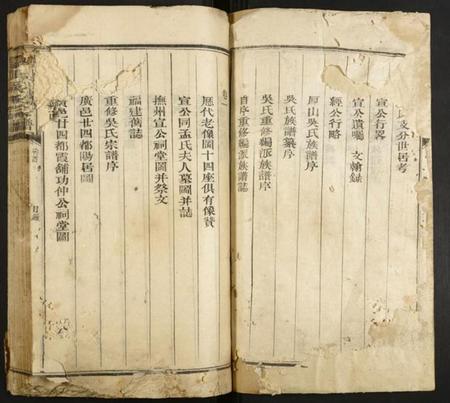 氏及分世居考
宣公行畧
宣公遺囑 文翰錄
經公行略
厚山吳氏族譜序
吳氏族譜纂序
吳氏重修編派族譜序
自序重修編派族譜誌
卷一
歷代老像圖十四座俱有像贊
宣公同孟氏夫人墓圖并誌
撫州宣公祠堂圖并祭文
福建舊誌
重修吳氏宗譜序
廣邑廿四都陽居圖
廣邑廿四都霞舖功仲公祠堂圖